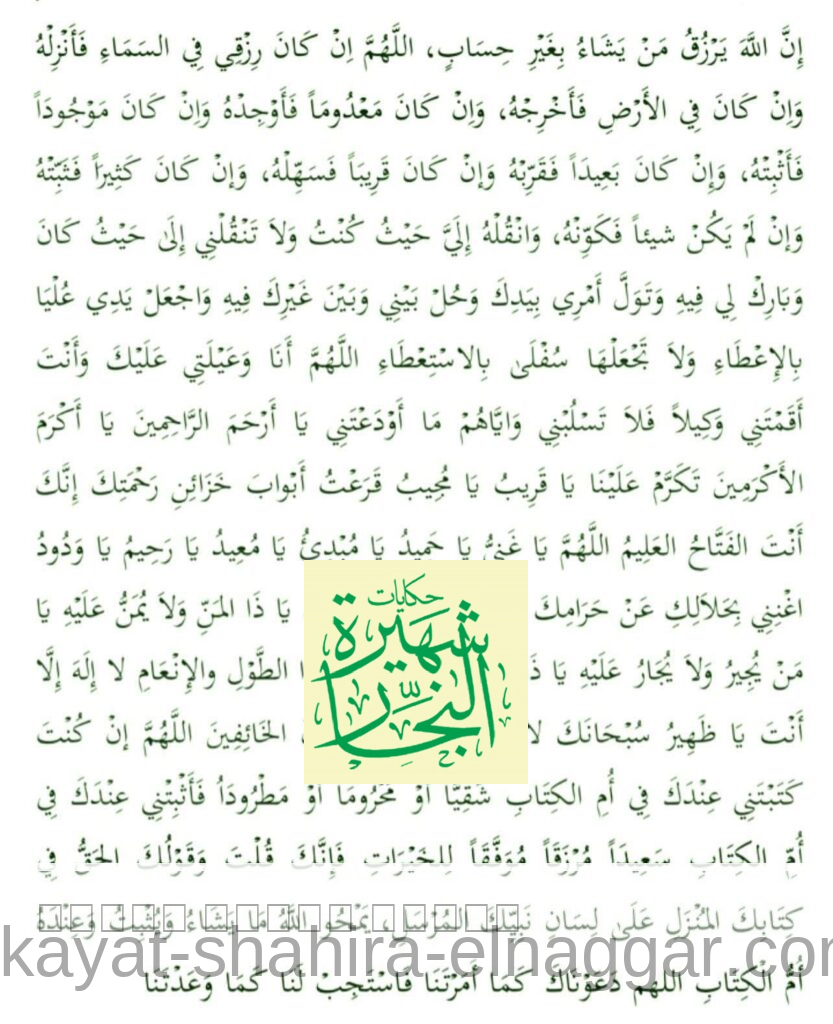 إِنَّ اللَّهَ يَرْزُقُ مَنْ يَشَاءُ بِغَيْرِ حِسَابٍ، اللَّهُمَّ اِنْ كَانَ رِزْقِي فِي السَمَاءِ فَأَنْزِلْهُ
وَاِنْ كَانَ فِي الأَرْضِ فَأَخْرِجْهُ، وَاِنْ كَانَ مَعْدُومَاً فَأَوْجِدْهُ وَاِنْ كَانَ مَوْجُودَاً
فَأَثْبِتْهُ، وَإِنْ كَانَ بَعِيدَاً فَقَرِّبْهُ وَإِنْ كَانَ قَرِيبَاً فَسَهِّلْهُ، وَإِنْ كَانَ كَثِيرَاً فَثَبِّتْهُ
وَإِنْ لَمْ يَكُنْ شيئاً فَكَوِّنْهُ، وَانْقُلْهُ إِلَيَّ حَيْثُ كُنْتُ وَلاَ تَنْقُلْنِي إِلَى حَيْثُ كَانَ
وَبَارِكْ لِي فِيهِ وَتَوَلَّ أَمْرِي بِيَدِكَ وَحُلْ بَيْنِي وَبَيْنَ غَيْرِكَ فِيهِ وَاجْعَلْ يَدِي عُلْيَا
بِالإِعْطَاءِ وَلاَ تَجْعَلْهَا سُفْلَى بِالاسْتِعْطَاءِ اللَّهُمَّ أَنَا وَعَيْلَتِي عَلَيْكَ وَأَنْتَ
أَقَمْتَنِي وَكِيلاً فَلاَ تَسْلُبْنِي وَايَّاهُمْ مَا أَوْدَعْتَنِي يَا أَرْحَمَ الرَّاحِمِينَ يَا أَكْرَمَ
الأَكْرَمِينَ تَكَرَّمْ عَلَيْنَا يَا قَرِيبُ يَا مُجِيبُ قَرَعْتُ أَبْوابَ خَزَائِنِ رَحْمَتِكَ إِنَّكَ
أَنْتَ الفَتَّاحُ العَلِيمُ اللَّهُمَّ يَا غَنِيُّ يَا حَمِيدُ يَا مُبْدِئُ يَا مُعِيدُ يَا رَحِيمُ يَا وَدُودُ
اغْنِنِي بِحَلاَلِكِ عَنْ حَرَامِكَ يَا ذَا المَنِّ وَلاَ يُمَنُّ عَلَيْهِ يَا
مَنْ يُجِيرُ وَلاَ يُجَارُ عَلَيْهِ يَا الطَّوْلِ والإِنْعَامِ لا إِلَهَ إِلَّا
أَنْتَ يَا ظَهِيرُ سُبْحَانَكَ لا الخَائِفِينَ اللَّهُمَّ إِنْ كُنْتَ
كَتَبْتَنِي عِنْدَكَ فِي أُمِ الكِتَابِ شَقِيَّا أَوْ مَحْرُومَا أَوْ مَطْرُودَاُ فَأَثْبِتْنِي عِنْدَكَ فِي
أُمِّ الكِتَابِ سَعِيدَاً مُرْزَقَاً مُوَفَّقَاً لِلخَيْرَاتِ فَإِنَّكَ قُلْتَ وَقَوْلُكَ الحَقُّ فِي
كِتَابِكَ المُنْزَلِ عَلَى لِسَانِ نَبِيِّكَ المُرْسَلِ، يَمْحُو اللَّهُ مَا يَشَاءُ وَيُثْبِتُ وَعِنْدَهُ
أُمُّ الْكِتَابِ اللهم دَعَوْنَاكَ كَمَا أَمَرْتَنَا فَاسْتَجِبْ لَنَا كَمَا وَعَدْتَنَا
حكايات
شهيرة
النجار
kayat-shahira-elnaggar.co